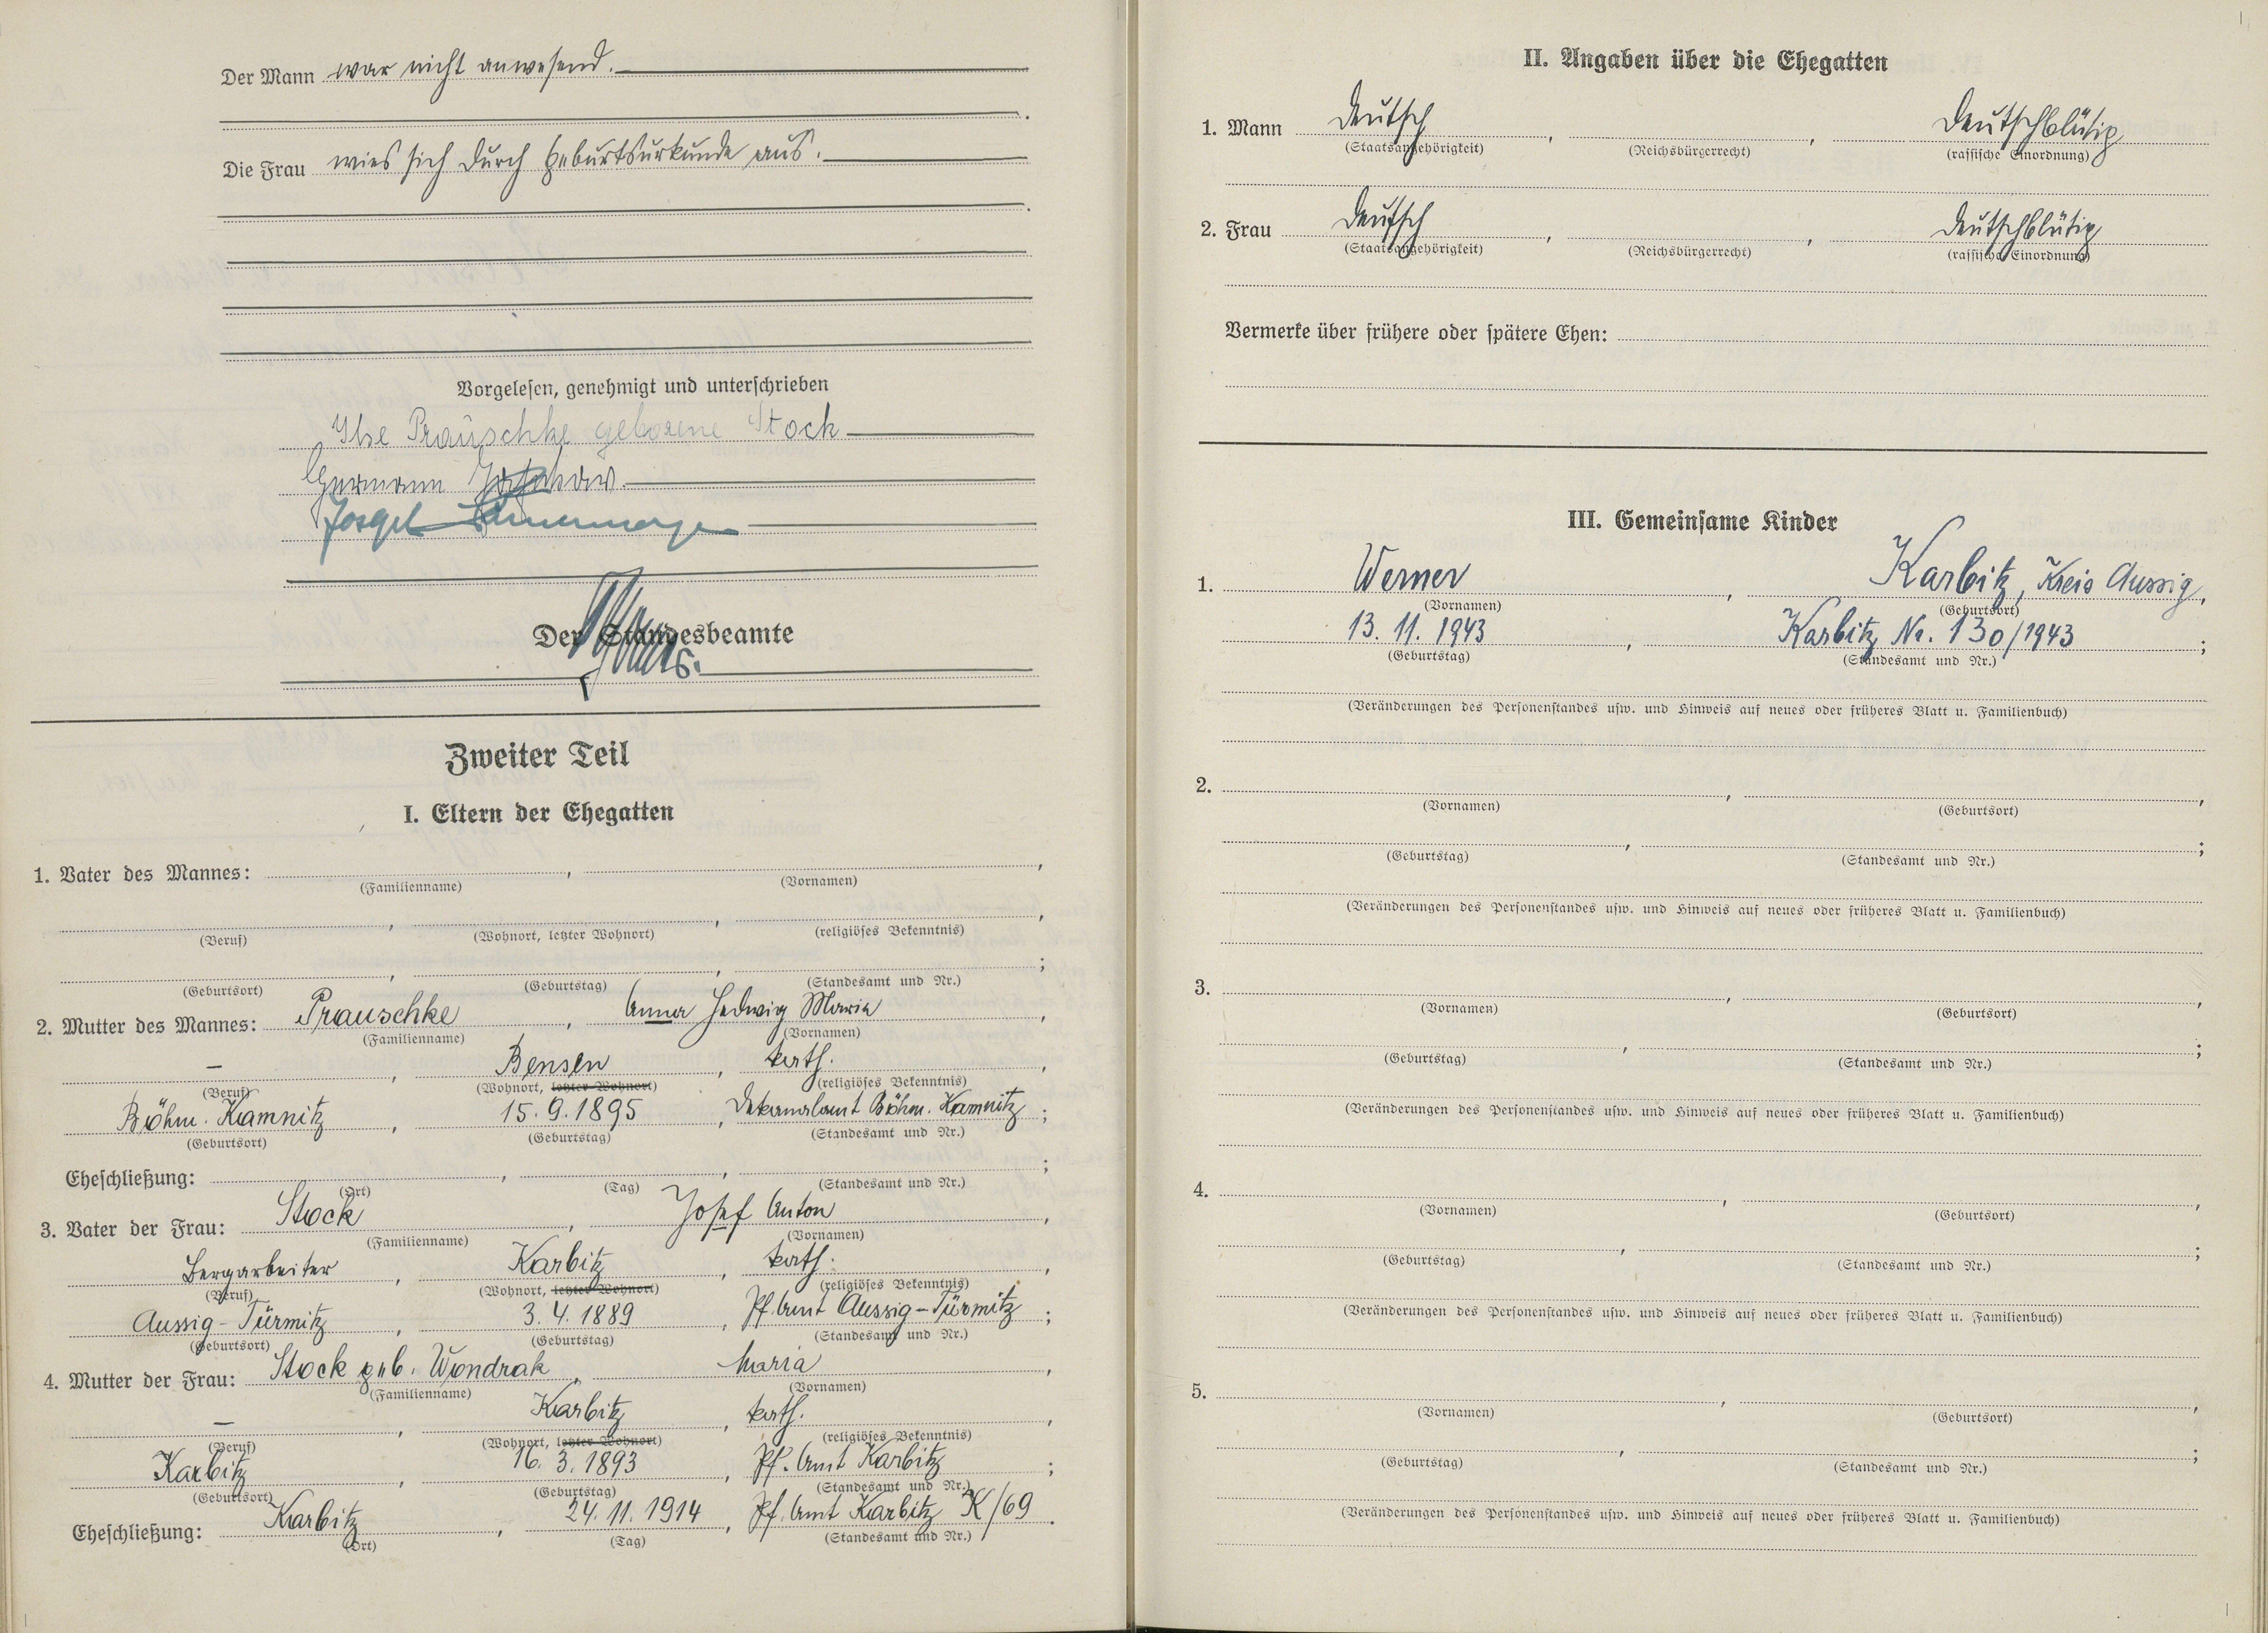 Der Mann war nicht anwesend.
Die Frau wies sich durch Geburtsurkunde aus.
Vorgelesen, genehmigt und unterschrieben
Ilse Prauschke geborene Stock
Hermann
Josef
Der Standesbeamte
Zweiter Teil
I. Eltern der Ehegatten
1. Vater des Mannes: , ,
(Familienname) (Vornamen)
, , ,
(Beruf) (Wohnort, letzter Wohnort) (religiöses Bekenntnis)
, , ;
(Geburtsort) (Geburtstag) (Standesamt und Nr.)
2. Mutter des Mannes: Prauschke , Anna Hedwig Maria ,
(Familienname) (Vornamen)
— , Bensen , kath. ,
(Beruf) (Wohnort, letzter Wohnort) (religiöses Bekenntnis)
Böhm. Kamnitz , 15.9.1895 , Dekanalamt Böhm. Kamnitz ;
(Geburtsort) (Geburtstag) (Standesamt und Nr.)
Eheschließung: , , ;
(Ort) (Tag) (Standesamt und Nr.)
3. Vater der Frau: Stock , Josef Anton ,
(Familienname) (Vornamen)
Bergarbeiter , Karbitz , kath. ,
(Beruf) (Wohnort, letzter Wohnort) (religiöses Bekenntnis)
Aussig-Türmitz , 3.4.1889 , Pf. Amt Aussig-Türmitz ;
(Geburtsort) (Geburtstag) (Standesamt und Nr.)
4. Mutter der Frau: Stock geb. Wondrak , Maria ,
(Familienname) (Vornamen)
— , Karbitz , kath. ,
(Beruf) (Wohnort, letzter Wohnort) (religiöses Bekenntnis)
Karbitz , 16.3.1893 , Pf. Amt Karbitz ;
(Geburtsort) (Geburtstag) (Standesamt und Nr.)
Eheschließung: Karbitz , 24.11.1914 , Pf. Amt Karbitz K/69 .
(Ort) (Tag) (Standesamt und Nr.)
II. Angaben über die Ehegatten
1. Mann Deutsch , , Deutschblütig
(Staatsangehörigkeit) (Reichsbürgerrecht) (rassische Einordnung)
2. Frau Deutsch , , Deutschblütig
(Staatsangehörigkeit) (Reichsbürgerrecht) (rassische Einordnung)
Vermerke über frühere oder spätere Ehen:
III. Gemeinsame Kinder
1. Werner , Karbitz, Kreis Aussig ,
(Vornamen) (Geburtsort)
13.11.1943 , Karbitz Nr. 130/1943 ;
(Geburtstag) (Standesamt und Nr.)
(Veränderungen des Personenstandes usw. und Hinweis auf neues oder früheres Blatt u. Familienbuch)
2. , ,
(Vornamen) (Geburtsort)
, ;
(Geburtstag) (Standesamt und Nr.)
(Veränderungen des Personenstandes usw. und Hinweis auf neues oder früheres Blatt u. Familienbuch)
3. , ,
(Vornamen) (Geburtsort)
, ;
(Geburtstag) (Standesamt und Nr.)
(Veränderungen des Personenstandes usw. und Hinweis auf neues oder früheres Blatt u. Familienbuch)
4. , ,
(Vornamen) (Geburtsort)
, ;
(Geburtstag) (Standesamt und Nr.)
(Veränderungen des Personenstandes usw. und Hinweis auf neues oder früheres Blatt u. Familienbuch)
5. , ,
(Vornamen) (Geburtsort)
, ;
(Geburtstag) (Standesamt und Nr.)
(Veränderungen des Personenstandes usw. und Hinweis auf neues oder früheres Blatt u. Familienbuch)